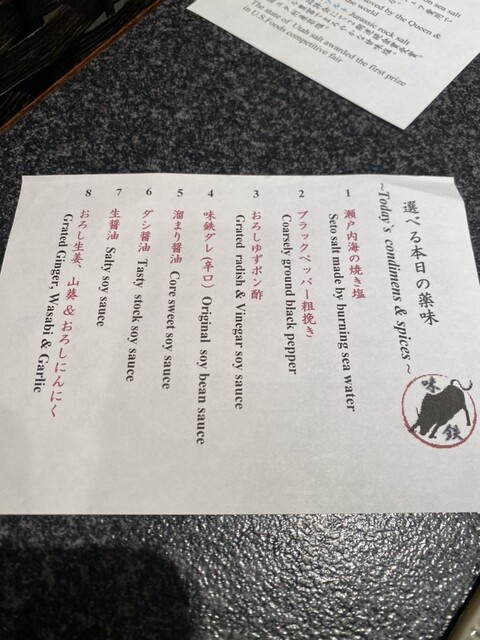 on sea salt
oved by the Queen &
the world
Jurassic rock salt
The taste of Utah salt awarded the first prize
in U.S.Foods competitive fair
選べる本日の薬味
~Today`s condimens & spices~
味
鉄
1 瀬戸内海の焼き塩
Seto salt made by burning sea water
2 ブラックペッパー粗挽き
Coarsely ground black pepper
3 おろしゆずポン酢
Grated radish & Vinegar soy sauce
4 味鉄ダレ(辛口) Original soy bean sauce
5 溜まり醤油 Core sweet soy sauce
6 ダシ醤油 Tasty stock soy sauce
7 生醤油 Salty soy sauce
8 おろし生姜、山葵&おろしにんにく
Grated Ginger, Wasabi & Garlic